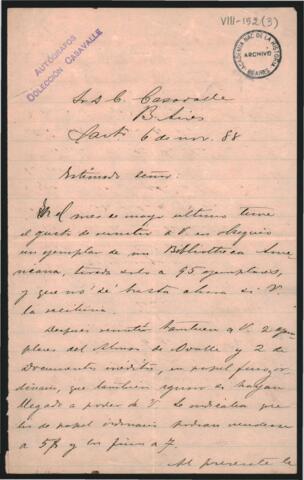 VIII-152 (3)
AUTÓGRAFOS
COLECCIÓN CASAVALLE
ACADEMIA NAC. DE LA HISTORIA
ARCHIVO
BS. AIRES
Sr D C. Casavalle
B. Aires
6 de nov. 88
Estimado señor:
El mes de mayo último tuve
el gusto de remitir a V. en obsequio
un ejemplar de mi Bibliotheca Ame-
ricana, tirada solo a 95 ejemplares,
y que no sé hasta ahora si V
la recibiera.
Despues remití tambien a V. 2 ejem-
plares del de Ovalle y 2 de
Documentos inéditos, en papel
que tambien ignoro se hayan
llegado a poder de V. Le indicaba que
los de papel ordinario podian venderse
a 5 y los finos a 7.
Al presente le